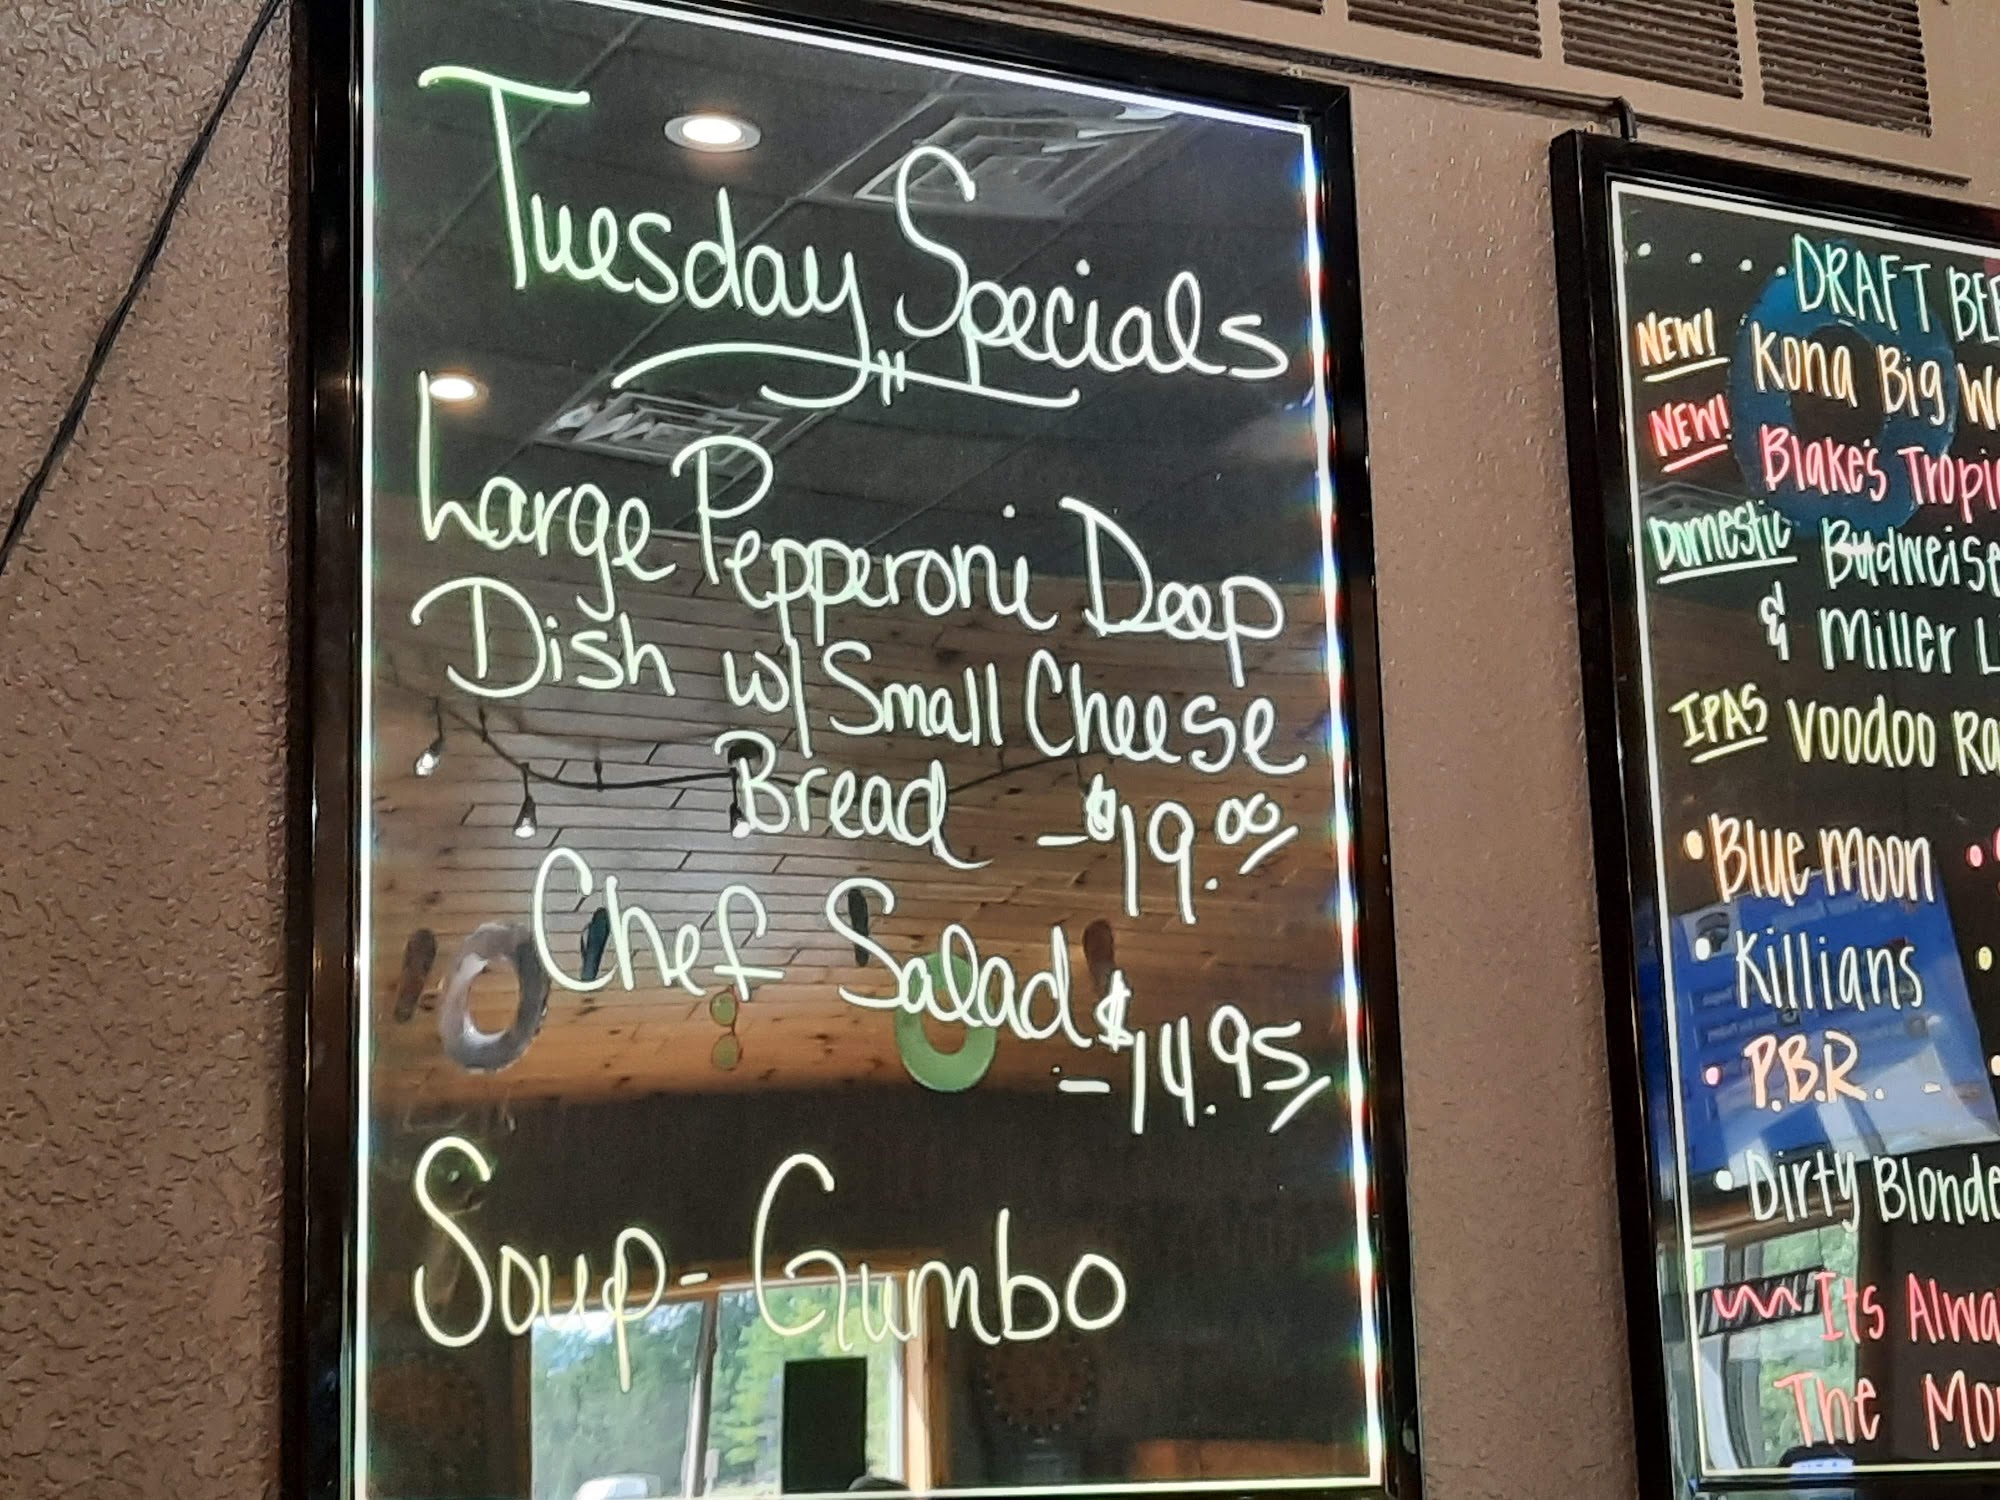 Tuesday Specials
Large Pepperoni Deep
Dish w/ Small Cheese
Bread - $19.00
Chef Salad
- $14.95
Soup - Gumbo
DRAFT
NEW! Kona Big
NEW! Blake's
Domestic
& Miller
IPAS Voodoo
• Blue Moon
• Killians
• P.B.R. -
• Dirty Blonde
Its
The